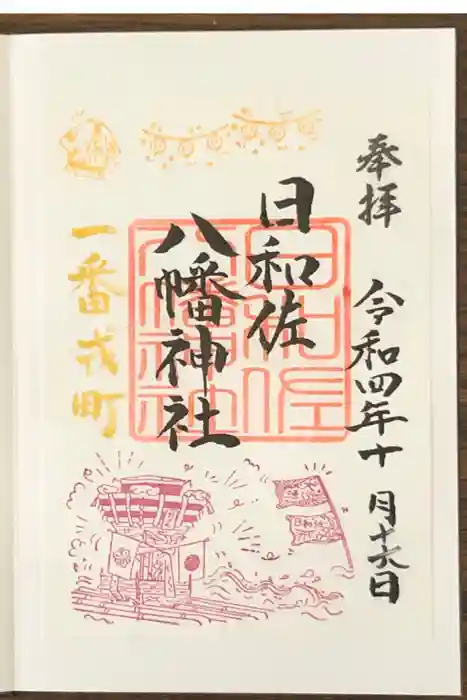 奉拝
令和四年十月十六日
日和佐
八幡神社
日和佐
八幡神社
一番戎町
日和佐